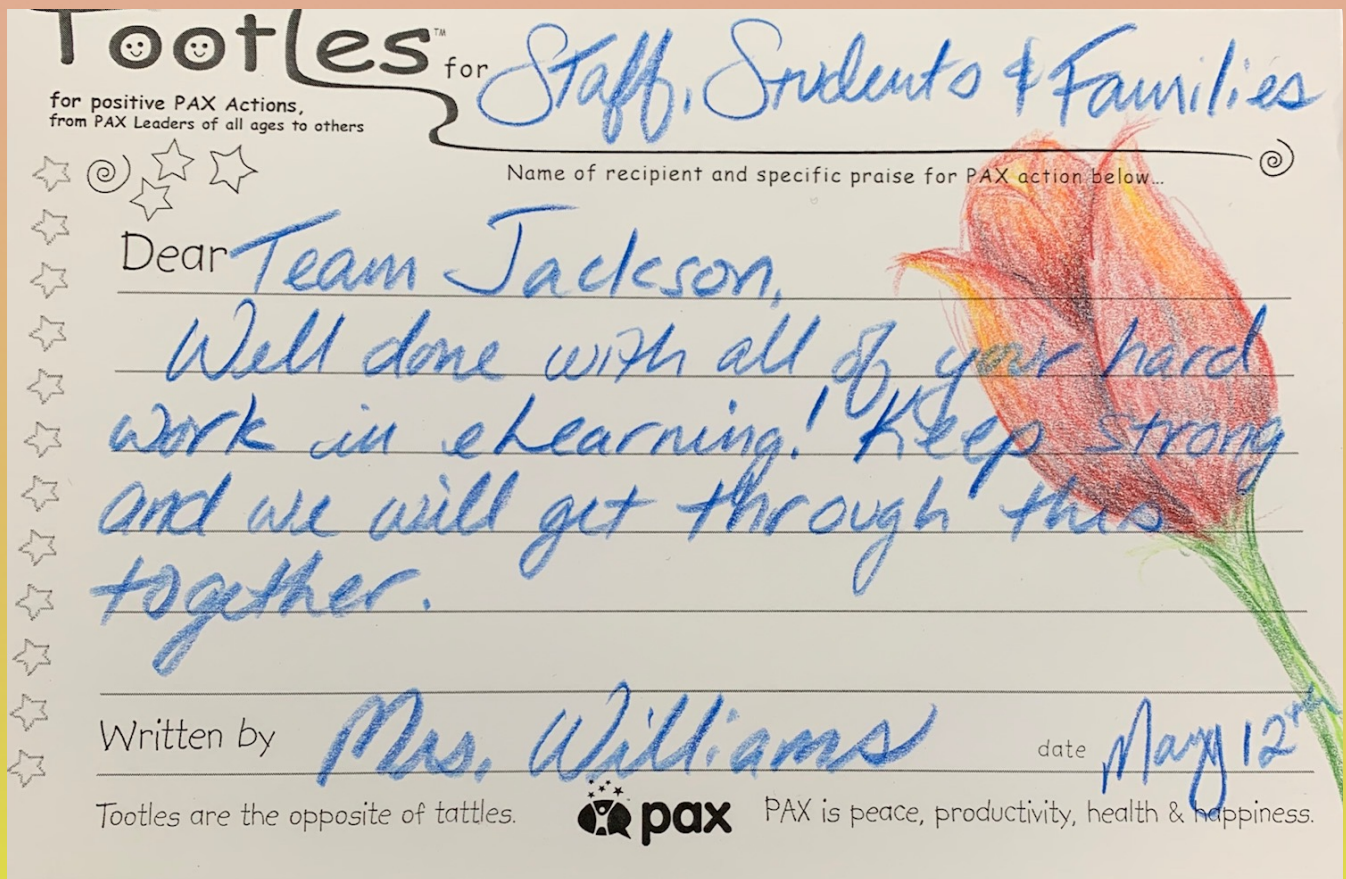 Tootles™ for Staff, Students & Families
for positive PAX Actions,
from PAX Leaders of all ages to others
Name of recipient and specific praise for PAX action below...
Dear Team Jackson,
Well done with all of your hard
work in eLearning! Keep strong
and we will get through this
together.
Written by Mrs. Williams date May 12th
Tootles are the opposite of tattles. pax PAX is peace, productivity, health & happiness.